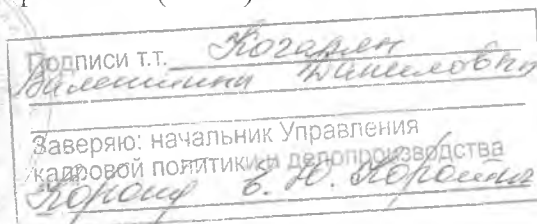 Подписи т.т. Когарлян
Валентины Даниловны
Заверяю: начальник Управления
кадровой политики и делопроизводства
Е. Ю.